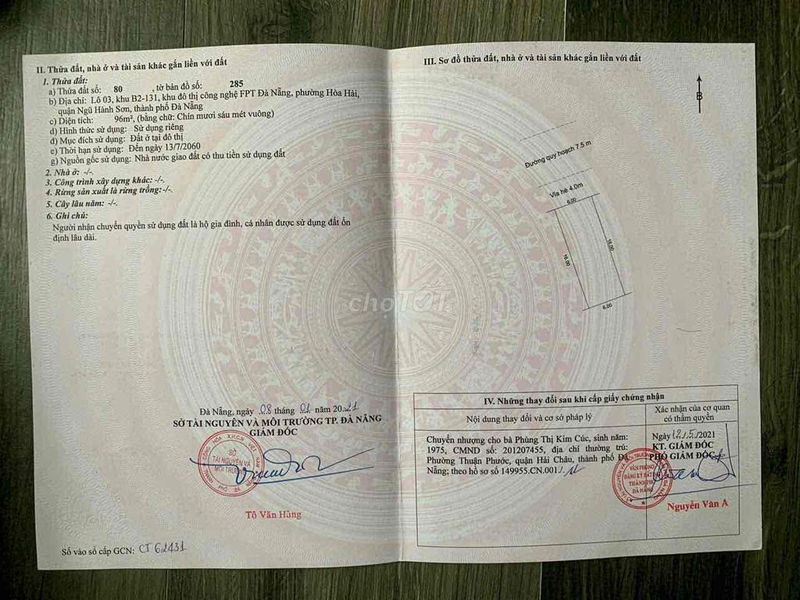 II. Thửa đất, nhà ở và tài sản khác gắn liền với đất
1. Thửa đất:
a) Thửa đất số: 80 , tờ bản đồ số: 285
b) Địa chỉ: Lô 03, khu B2-131, khu đô thị công nghệ FPT Đà Nẵng, phường Hòa Hải,
quận Ngũ Hành Sơn, thành phố Đà Nẵng
c) Diện tích: 96m², (bằng chữ: Chín mươi sáu mét vuông)
d) Hình thức sử dụng: Sử dụng riêng
đ) Mục đích sử dụng: Đất ở tại đô thị
e) Thời hạn sử dụng: Đến ngày 13/7/2060
g) Nguồn gốc sử dụng: Nhà nước giao đất có thu tiền sử dụng đất
2. Nhà ở: -/-
3. Công trình xây dựng khác: -/-.
4. Rừng sản xuất là rừng trồng:-/-.
5. Cây lâu năm: -/-.
6. Ghi chú:
Người nhận chuyển quyền sử dụng đất là hộ gia đình, cá nhân được sử dụng đất ổn
định lâu dài.
Đà Nẵng, ngày 08 tháng 01 năm 2021
SỞ TÀI NGUYÊN VÀ MÔI TRƯỜNG TP. ĐÀ NẴNG
GIÁM ĐỐC
SỞ
TÀI NGUYÊN VÀ
MÔI TRƯỜNG
Tô Văn Hùng
Số vào sổ cấp GCN: CT 62431
III. Sơ đồ thửa đất, nhà ở và tài sản khác gắn liền với đất
B
Đường quy hoạch 7.5 m
Vỉa hè 4.0m
6.00
16.00
16.00
6.00
choTỐT
IV. Những thay đổi sau khi cấp giấy chứng nhận
Nội dung thay đổi và cơ sở pháp lý
Xác nhận của cơ quan
có thẩm quyền
Chuyển nhượng cho bà Phùng Thị Kim Cúc, sinh năm:
1975, CMND số: 201207455, địa chỉ thường trú:
Phường Thuận Phước, quận Hải Châu, thành phố Đà
Nẵng; theo hồ sơ số 149955.CN.001./.
Ngày 12/5/2021
KT. GIÁM ĐỐC
PHÓ GIÁM ĐỐC
VĂN PHÒNG
ĐĂNG KÝ ĐẤT ĐAI
THÀNH PHỐ
ĐÀ NẴNG
Nguyễn Văn A